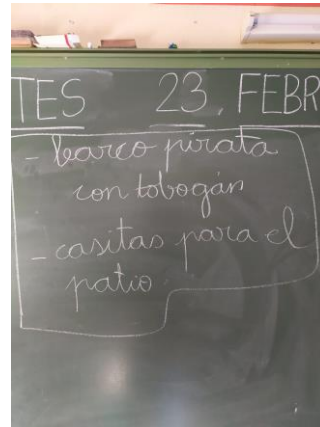 TES 23, FEBR
- barco pirata
con tobogán
- casitas para el
patio